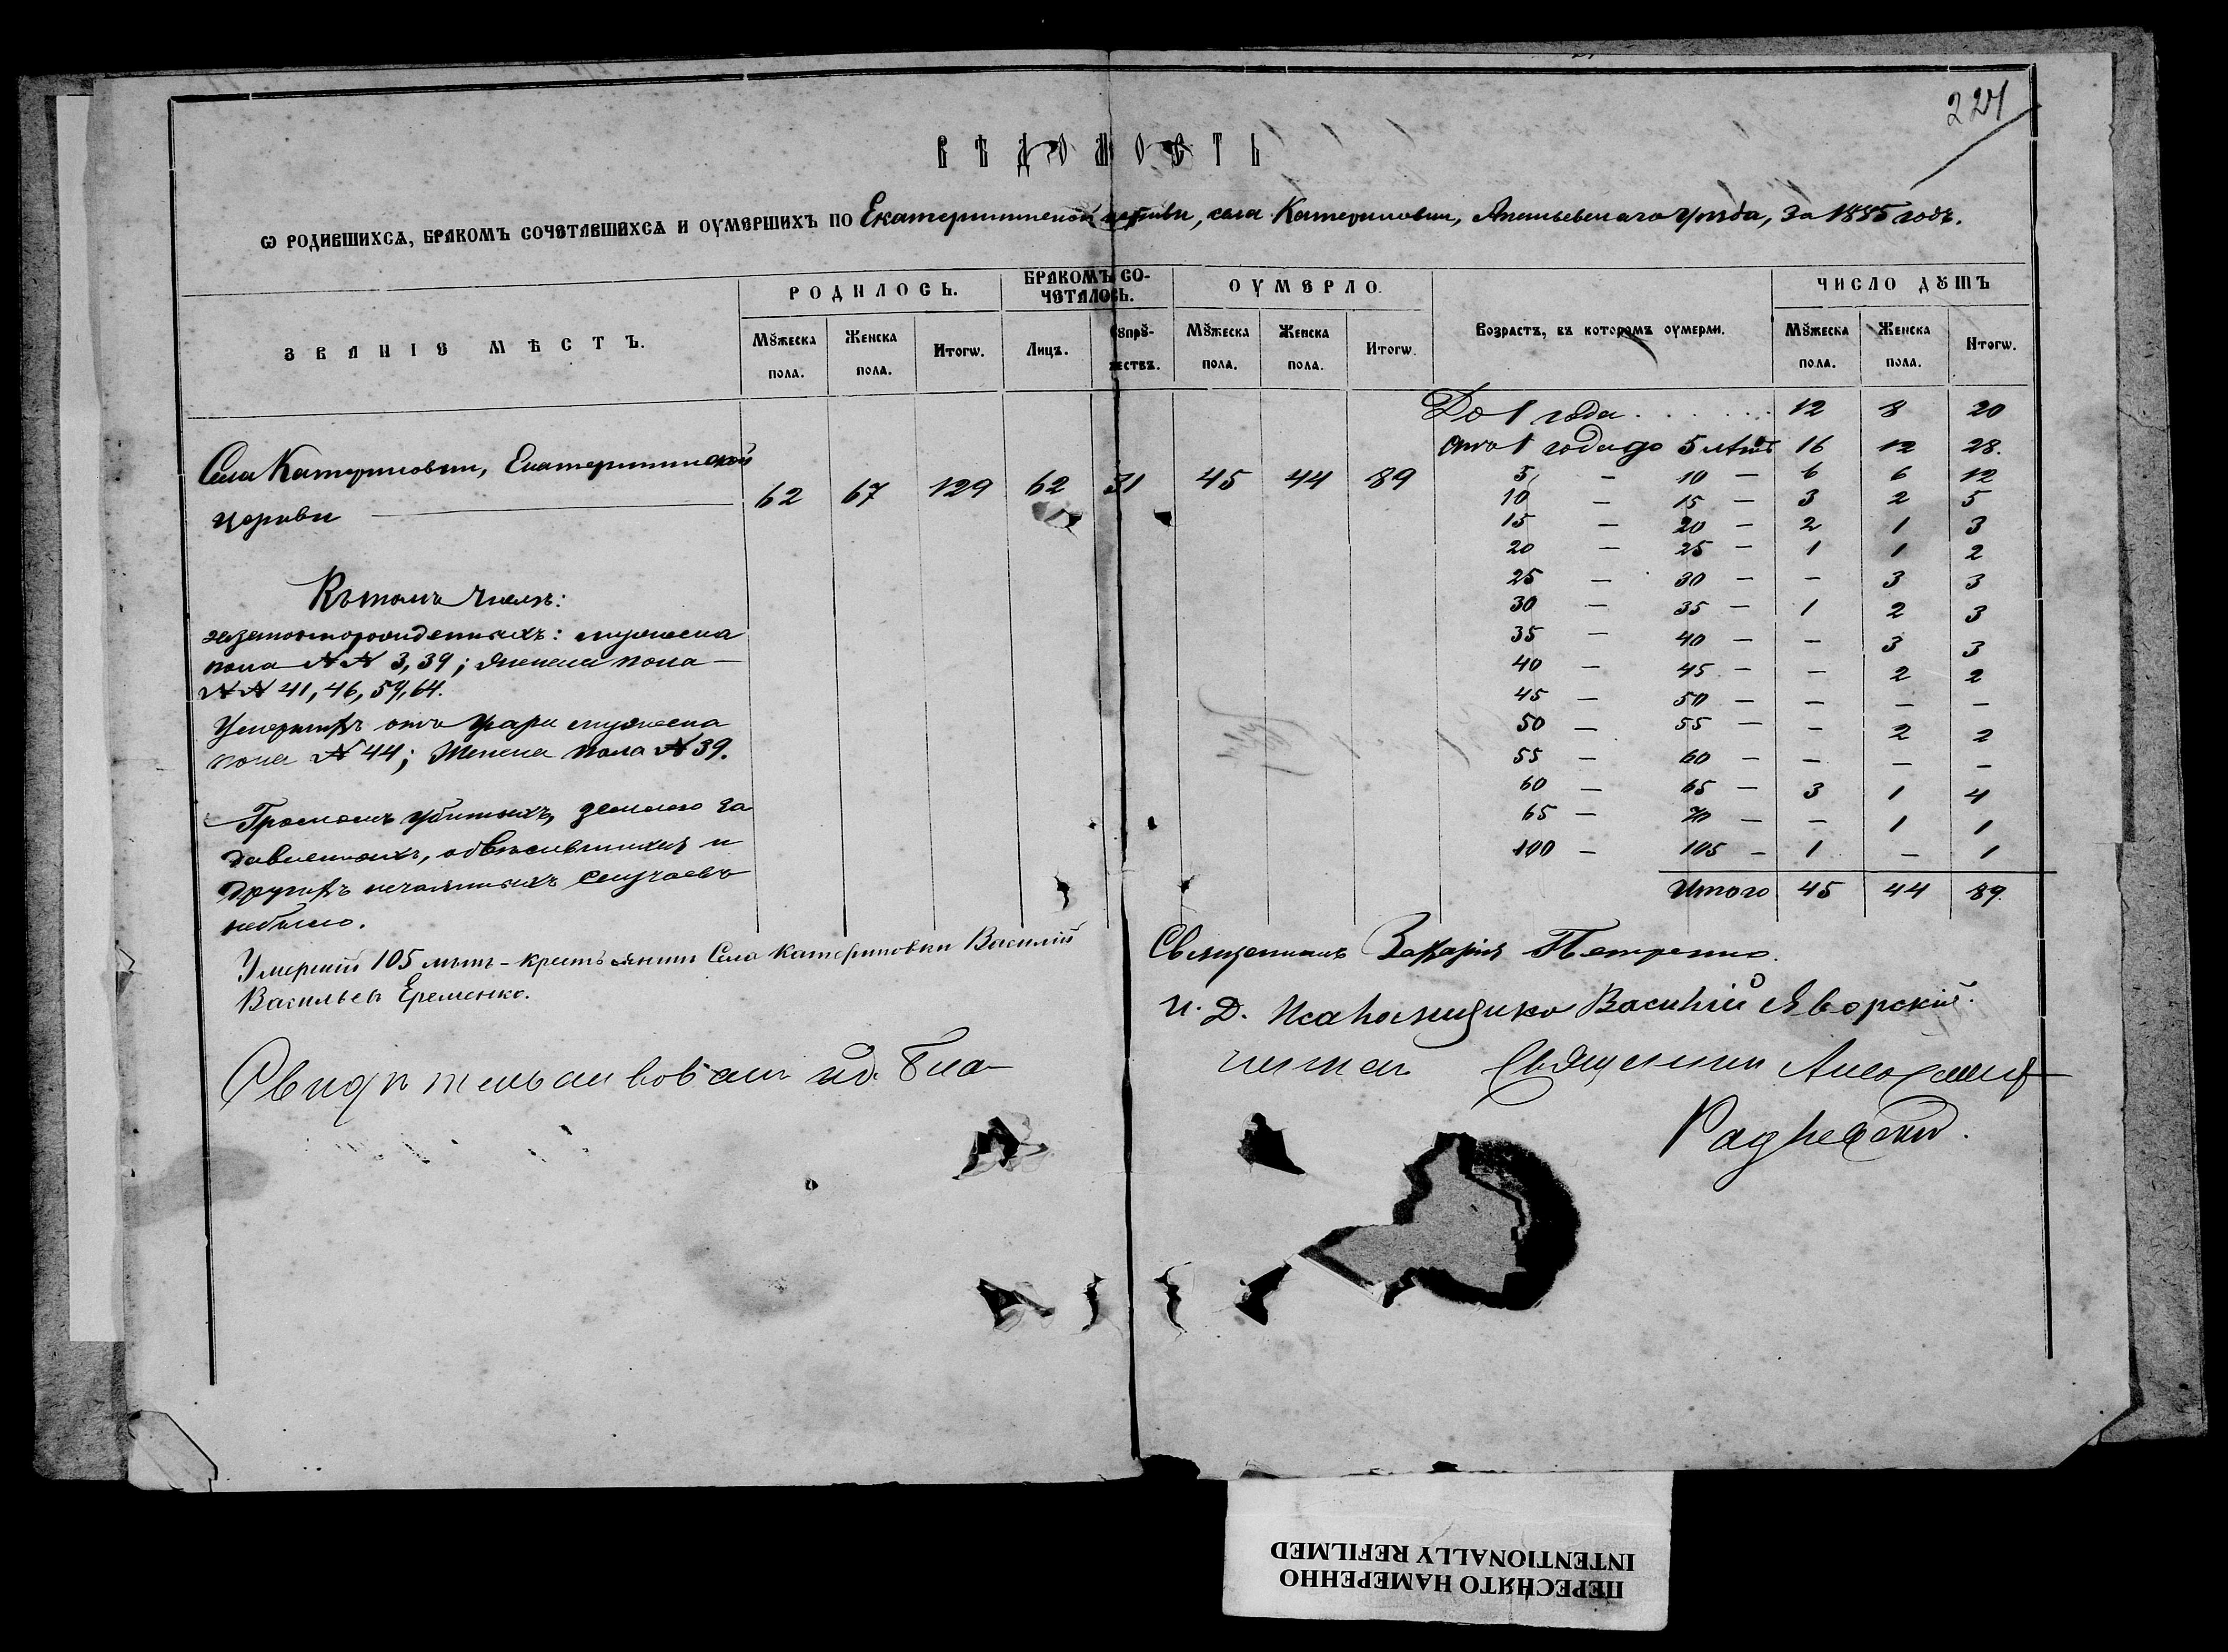 224
ВѢДОМОСТЬ
Ѡ РОДИВШИХСѦ, БРАКОМЪ СОЧЕТАВШИХСѦ И ОУМЕРШИХЪ ПО Екатерининской церкви, села Катериновки, Ананьевскаго уѣзда, за 1885 годъ.
ЗВАНІЕ МѢСТЪ.
РОДИЛОСЬ.
БРАКОМЪ СО-
ЧЕТАЛОСЬ.
ОУМЕРЛО.
Возрастъ, въ которомъ оумерли.
ЧИСЛО ДꙊШЪ
Мꙋжеска пола.
Женска пола.
Итогѡ.
Лицъ.
Сꙋпрꙋ-
жествъ.
Мꙋжеска пола.
Женска пола.
Итогѡ.
Мꙋжеска пола.
Женска пола.
Итогѡ.
Села Катериновки, Екатерининской
церкви 62 67 129 62 31 45 44 89
Въ томъ числѣ:
незаконнорожденныхъ: мужеска
пола №№ 3, 39; женска пола —
№№ 41, 46, 59, 64.
Умершихъ отъ мужеска
пола № 44; женска пола № 39.
Громомъ убитыхъ, землею за
давленныхъ, обвѣсившихся и
другихъ нечаянныхъ случаевъ
небыло.
Умершій 105 лѣтъ - крестьянинъ Села Катериновки Василій
Васильевъ Еременко.
До 1 года . . . . . . 12 8 20
отъ 1 года до 5 лѣтъ 16 12 28.
5 — 10 — 6 6 12
10 — 15 — 3 2 5
15 — 20 — 2 1 3
20 — 25 — 1 1 2
25 — 30 — — 3 3
30 — 35 — 1 2 3
35 — 40 — — 3 3
40 — 45 — — 2 2
45 — 50 — — — —
50 — 55 — — 2 2
55 — 60 — — — —
60 — 65 — 3 1 4
65 — 70 — — 1 1
100 — 105 — 1 — 1
Итого 45 44 89.
Священникъ Захарія Петренко.
И. Д. Псаломщика Василій Яворскій.
Свидѣтельствовалъ и.д. Бла-
чиннаго Священникъ
ПЕРЕСНЯТО НАМЕРЕННО
INTENTIONALLY REFILMED